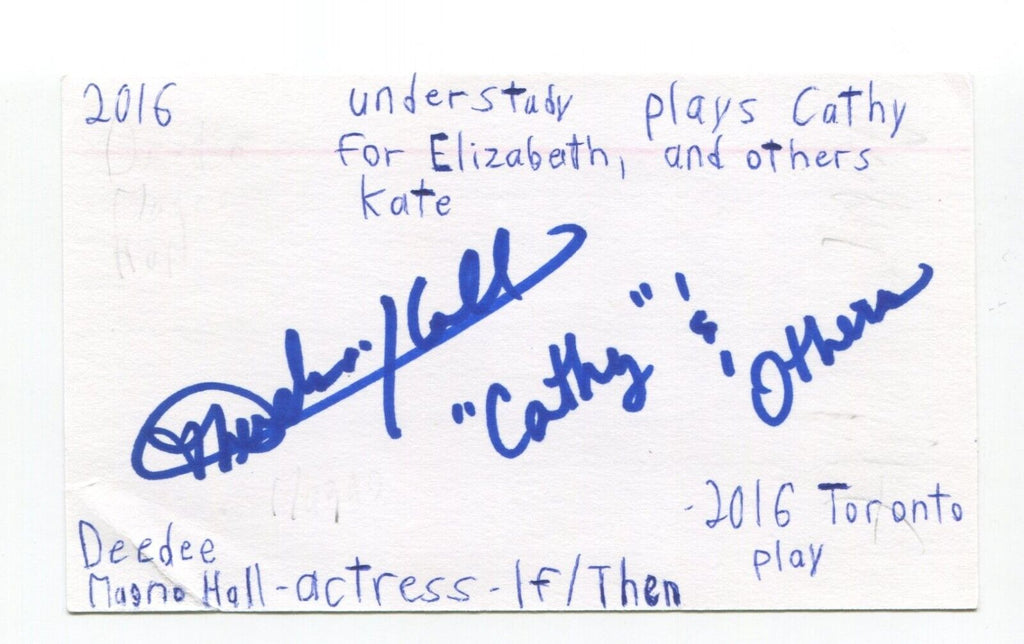 2016
understudy
for Elizabeth,
Kate
plays Cathy
and others
"Cathy" & Others
- 2016 Toronto
play
Deedee
Magno Hall - actress - If/Then